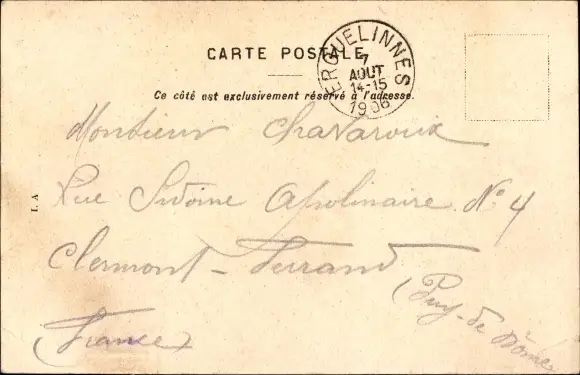 CARTE POSTALE
ERQUELINNES
7
AOUT
14-15
1906
Ce côté est exclusivement réservé à l'adresse.
Monsieur Chavaroux
Rue Sidoine Apolinaire No 4
Clermont-Ferrand
(Puy-de Dôme)
(France)
I. A